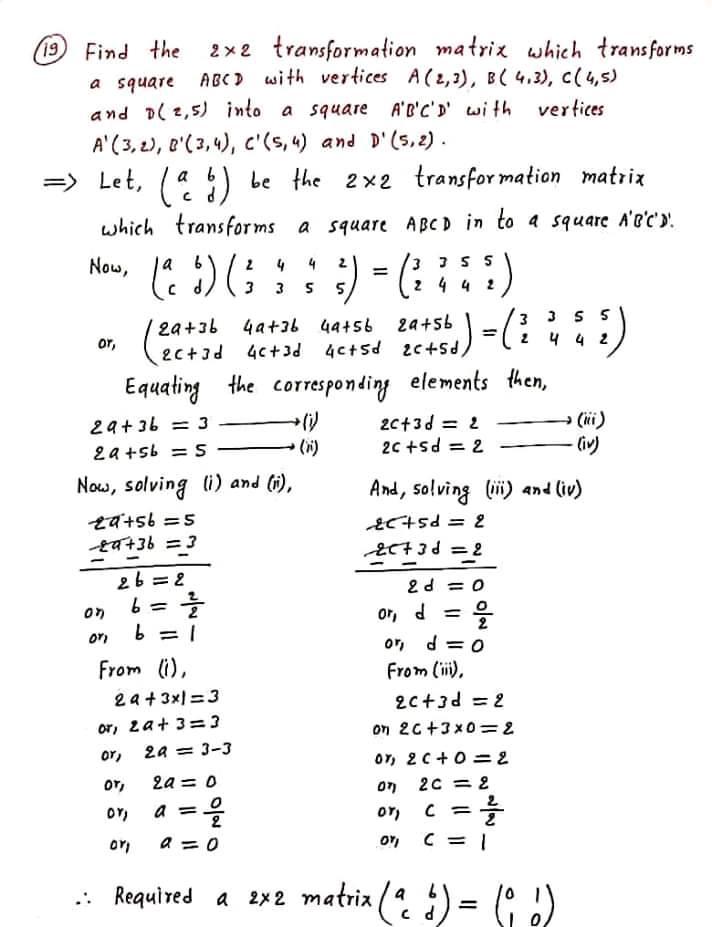 (19) Find the 2×2 transformation matrix which transforms
a square ABCD with vertices A(2,3), B(4,3), C(4,5)
and D(2,5) into a square A'B'C'D' with vertices
A'(3,2), B'(3,4), C'(5,4) and D'(5,2).
=> Let, (a b
c d) be the 2×2 transformation matrix
which transforms a square ABCD in to a square A'B'C'D'.
Now, (a b
c d) (2 4 4 2
3 3 5 5) = (3 3 5 5
2 4 4 2)
or, (2a+3b 4a+3b 4a+5b 2a+5b
2c+3d 4c+3d 4c+5d 2c+5d) = (3 3 5 5
2 4 4 2)
Equating the corresponding elements then,
2a+3b = 3 → (i)
2a+5b = 5 → (ii)
Now, solving (i) and (ii),
2a+5b = 5
2a+3b = 3
− − −
2b = 2
or, b = 2/2
or, b = 1
From (i),
2a+3×1=3
or, 2a+3=3
or, 2a = 3-3
or, 2a = 0
or, a = 0/2
or, a = 0
2c+3d = 2 → (iii)
2c+5d = 2 — (iv)
And, solving (iii) and (iv)
2c+5d = 2
2c+3d = 2
− − −
2d = 0
or, d = 0/2
or, d = 0
From (iii),
2c+3d = 2
or, 2c+3×0=2
or, 2c+0=2
or, 2c = 2
or, c = 2/2
or, c = 1
∴ Required a 2×2 matrix (a b
c d) = (0 1
1 0)